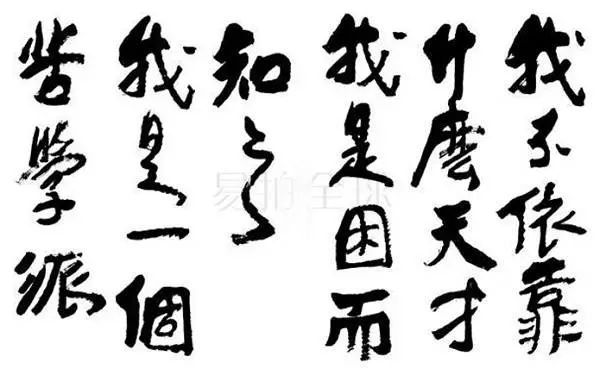 我不依靠
什麼天才
我是困而
知之
我是一個
苦學派
易拍全球